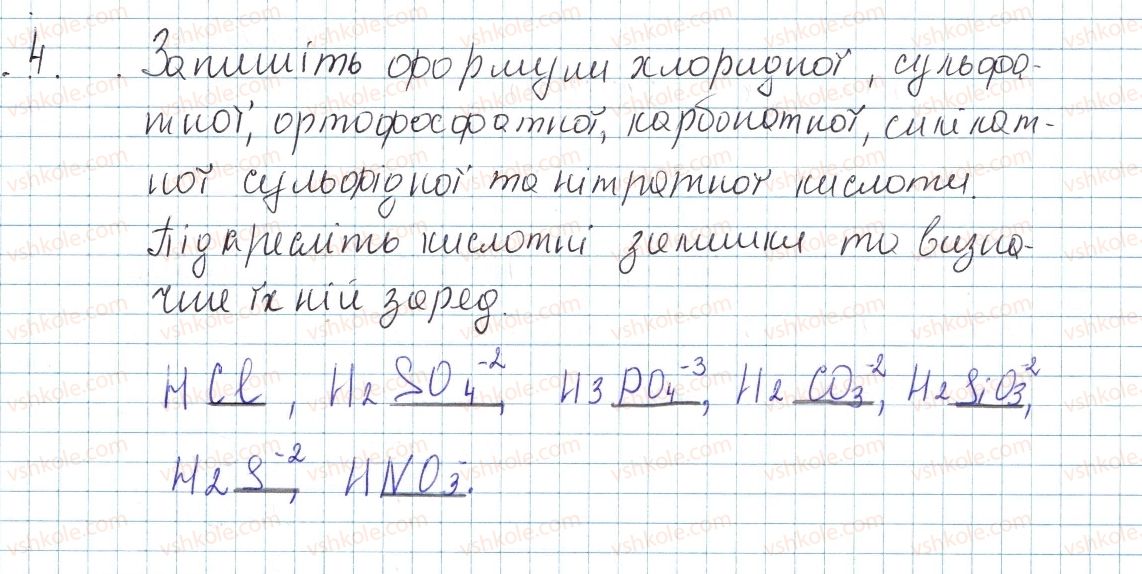 4. Запишіть формули хлоридної, сульфа-
тної, ортофосфатної, карбонатної, силікат-
ної сульфідної та нітратної кислоти.
Підкресліть кислотні залишки та визна-
чте їхній заряд.
HCl, H2SO4⁻², H3PO4⁻³, H2CO3⁻², H2SiO3⁻²,
H2S⁻², HNO3⁻.